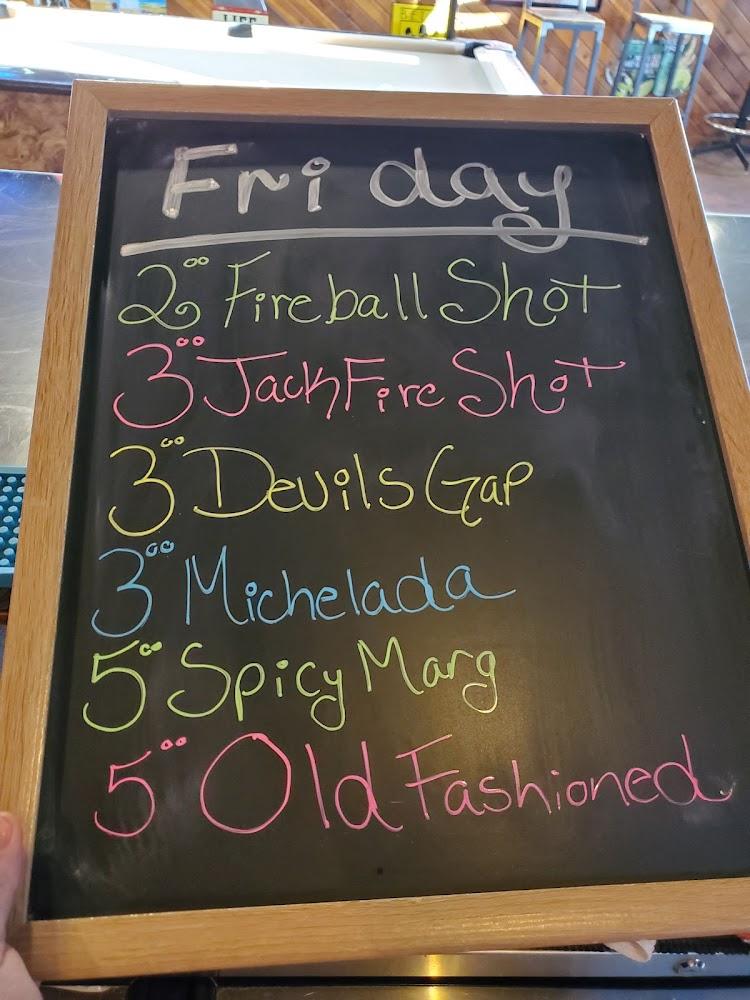 LIFE
Friday
2⁰⁰ Fireball Shot
3⁰⁰ Jack Fire Shot
3⁰⁰ Devils Gap
3⁰⁰ Michelada
5⁰⁰ Spicy Marg
5⁰⁰ Old Fashioned